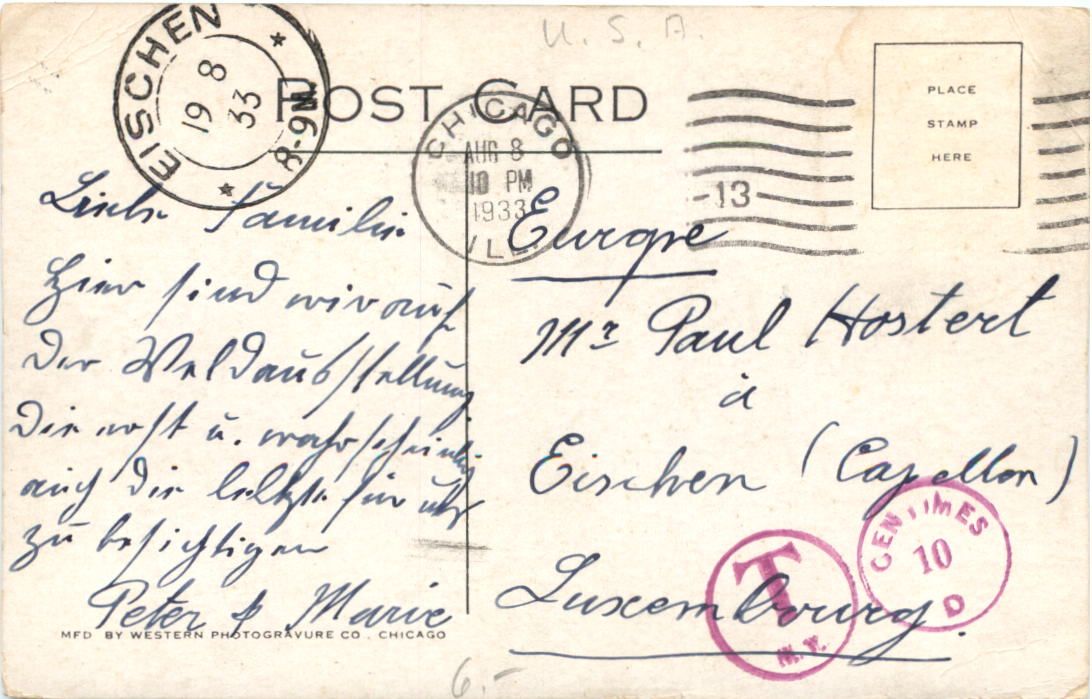 U. S. A.
EISCHEN
19 8
33
8-9M
POST CARD
CHICAGO
AUG 8
10 PM
1933
ILL.
13
PLACE
STAMP
HERE
Liebe Familie
Hier sind wir auf
der Weldausstellung
die erst u. wahrscheinlich
auch die letzte für uns
zu besichtigen
Peter & Marie
MFD BY WESTERN PHOTOGRAVURE CO. CHICAGO
Europe
Mr Paul Hostert
à
Eischen (Capellen)
Luxembourg.
CENTIMES
10
D
T
N.Y.
6.-